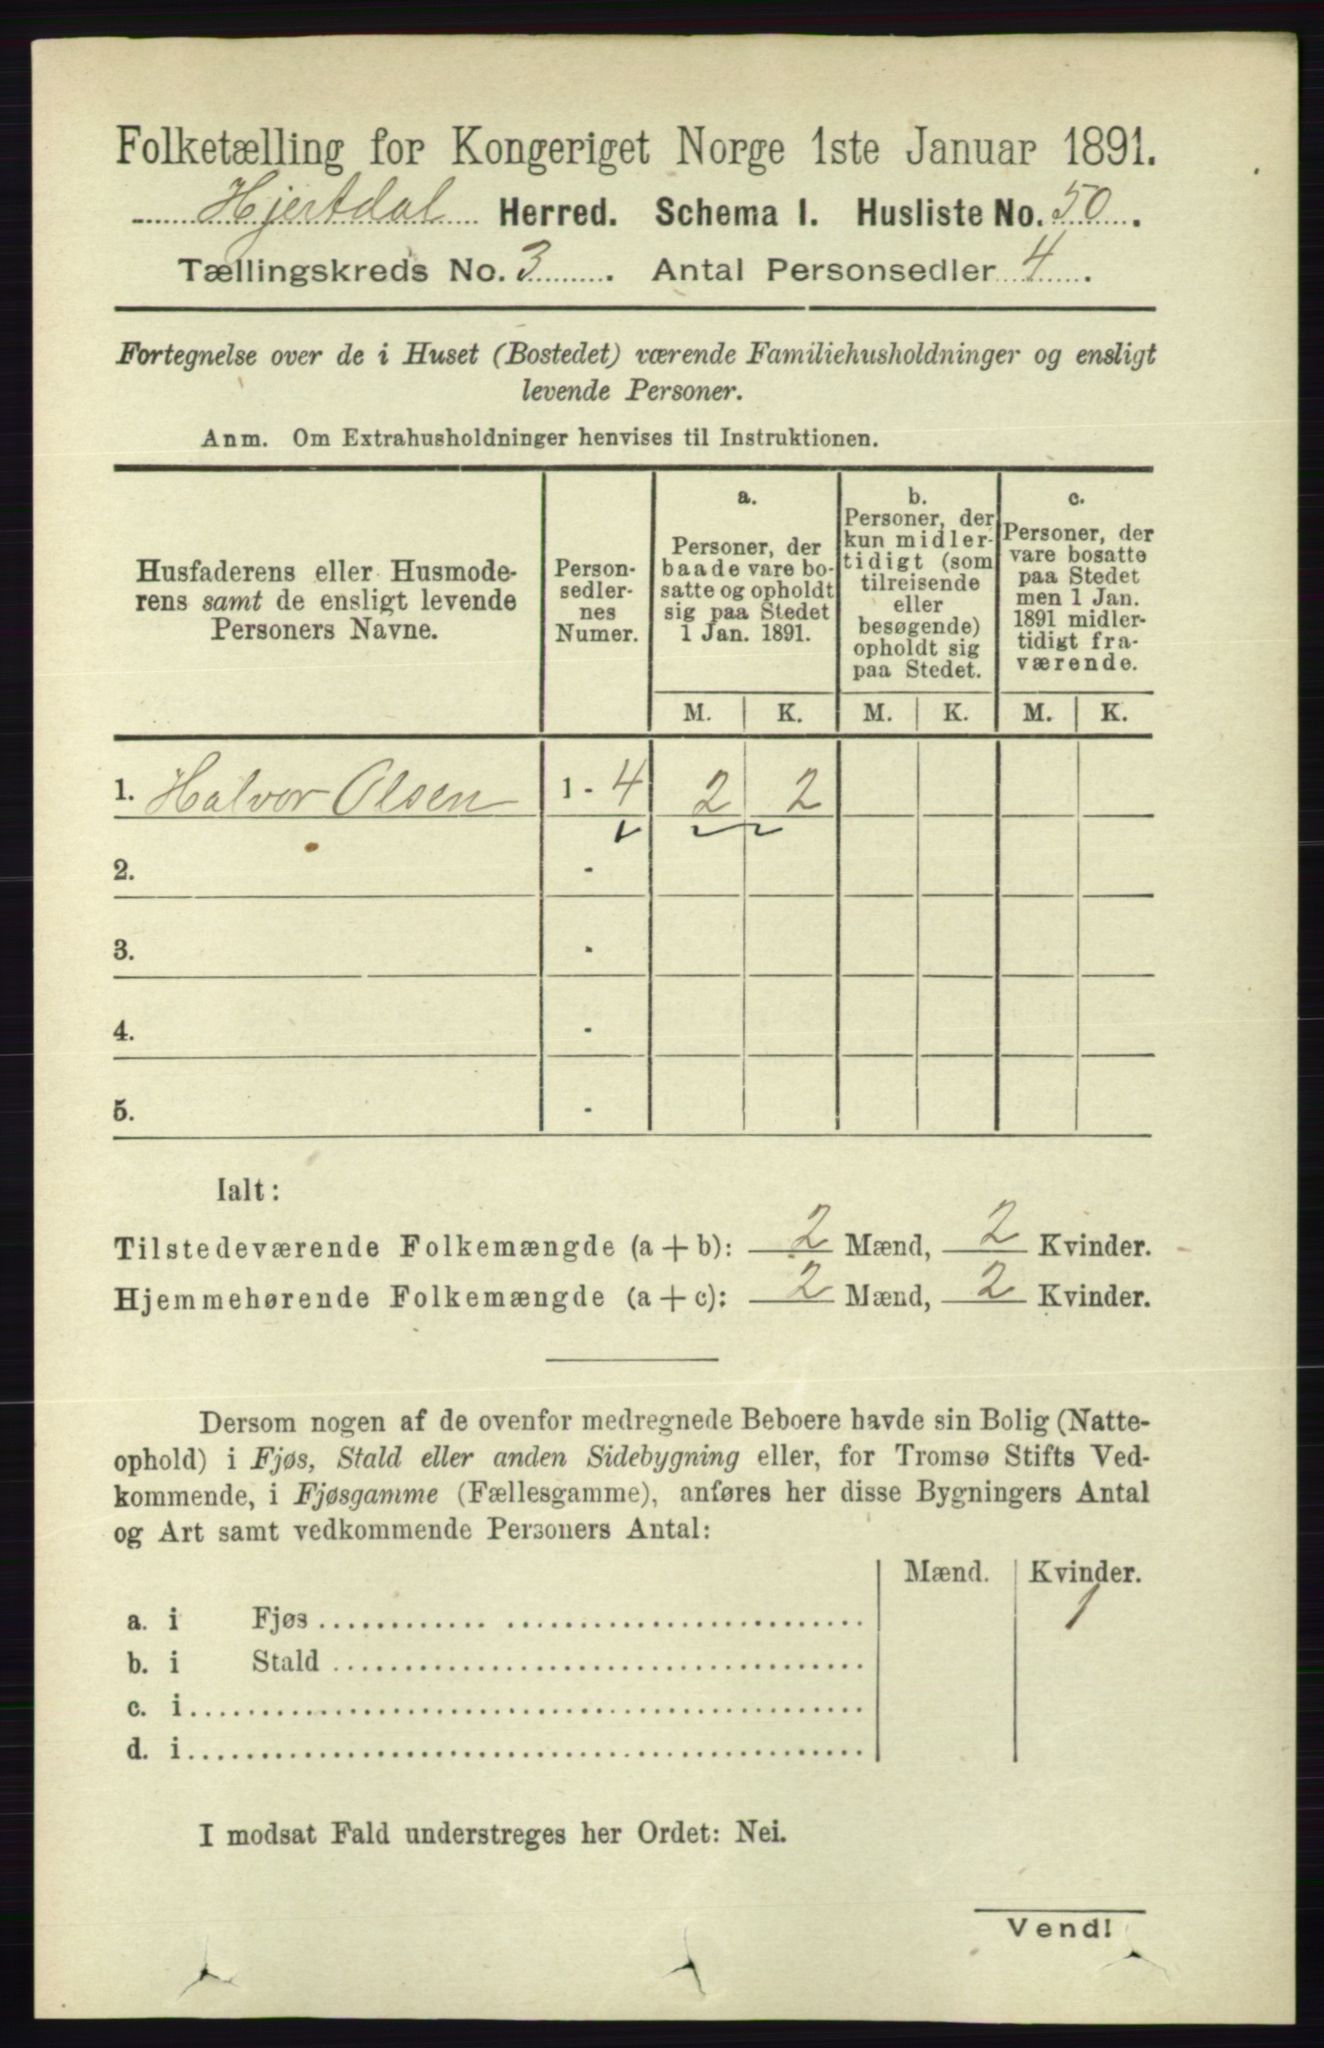 Folketælling for Kongeriget Norge 1ste Januar 1891.
Hjertdal Herred. Schema I. Husliste No. 50.
Tællingskreds No. 3. Antal Personsedler 4.
Fortegnelse over de i Huset (Bostedet) værende Familiehusholdninger og ensligt
levende Personer.
Anm. Om Extrahusholdninger henvises til Instruktionen.
Husfaderens eller Husmode-
rens samt de ensligt levende
Personers Navne.
Person-
sedler-
nes
Numer.
a.
Personer, der
baade vare bo-
satte og opholdt
sig paa Stedet
1 Jan. 1891.
b.
Personer, der
kun midler-
tidigt (som
tilreisende
eller
besøgende)
opholdt sig
paa Stedet.
c.
Personer, der
vare bosatte
paa Stedet
men 1 Jan.
1891 midler-
tidigt fra-
værende.
M. K. M. K. M. K.
1. Halvor Olsen 1 - 4 2 2
2. -
3. -
4. -
5. -
Ialt:
Tilstedeværende Folkemængde (a + b): 2 Mænd, 2 Kvinder.
Hjemmehørende Folkemængde (a + c): 2 Mænd, 2 Kvinder.
Dersom nogen af de ovenfor medregnede Beboere havde sin Bolig (Natte-
ophold) i Fjøs, Stald eller anden Sidebygning eller, for Tromsø Stifts Ved-
kommende, i Fjøsgamme (Fællesgamme), anføres her disse Bygningers Antal
og Art samt vedkommende Personers Antal:
Mænd. Kvinder.
a. i Fjøs 1
b. i Stald
c. i
d. i
I modsat Fald understreges her Ordet: Nei.
Vend!